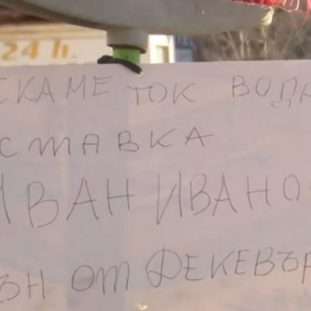 24 h.
СКАМЕ ТОК ВОДА
СТАВКА
ИВАН ИВАНО
ЪН ОТ ДЕКЕВЪР